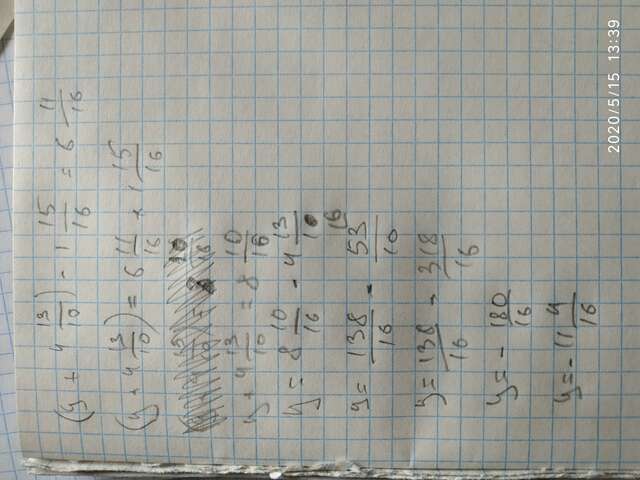 (y + 4 13/10) - 1 15/16 = 6 11/16
(y + 4 13/10) = 6 11/16 + 1 15/16
y + 4 13/10 = 8 10/16
y = 8 10/16 - 4 13/10
y = 138/16 - 53/10
y = 138/16 - 318/16
y = - 180/16
y = - 11 4/16
2020/5/15 13:39